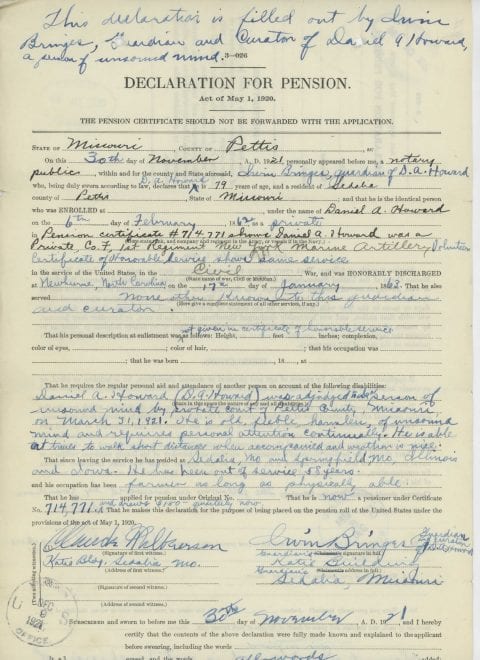 This declaration is filled out by Irwin
Bringes, Guardian and Curator of David A Howard,
a person of unsound mind.
3—026
DECLARATION FOR PENSION.
Act of May 1, 1920.
THE PENSION CERTIFICATE SHOULD NOT BE FORWARDED WITH THE APPLICATION.
STATE OF Missouri, COUNTY OF Pettis, ss:
On this 30th day of November, A. D. 1921 personally appeared before me, a notary
public, within and for the county and State aforesaid, Irwin Bringes, guardian of D. A. Howard
D. A. Howard
who, being duly sworn according to law, declares that is 79 years of age, and a resident of Sedalia
county of Pettis, State of Missouri; and that he is the identical person
who was ENROLLED at under the name of Daniel A. Howard
on the 6th day of February, 1862 as private
in Pension certificate # 714,771 shows Daniel A. Howard was a
Private, Co. F, 1st Regiment New York Marine Artillery Volunteer
Certificate of Honorable Service shows same service
in the service of the United States, in the Civil War, and was HONORABLY DISCHARGED
(State name of war, Civil or Mexican)
at Newburne, North Carolina on the 17th day of January, 1863. That he also
served None other known to this guardian
(Here give a complete statement of all other services, if any.)
and curator
not given in certificate of honorable service
That his personal description at enlistment was as follows: Height, feet inches; complexion,
color of eyes, ; color of hair, ; that his occupation was
; that he was born , 18 , at
That he requires the regular personal aid and attendance of another person on account of the following disabilities:
Daniel A. Howard (D. A. Howard) was adjudged person of
unsound mind by probate court of Pettis County, Missouri,
on March 31, 1921. He is old, feeble, harmless, of unsound
mind and requires personal attention continually. He is able
at times to walk short distances when accompanied and weather is nice.
That since leaving the service he has resided at Sedalia Mo and Springfield Mo, Illinois
and Iowa. He has been out of service 58 years.
and his occupation has been farmer as long as physically able.
That he has applied for pension under Original No. That he is now a pensioner under Certificate
No. 714,771. That he makes this declaration for the purpose of being placed on the pension roll of the United States under the
provisions of the act of May 1, 1920.
Irwin Bringes Guardian
and curator
(Signature of first witness.)
Katie Bldg. Sedalia Mo.
(Address of first witness.)
Katie Building
(Signature of second witness.)
Sedalia, Missouri
(Address of second witness.)
SUBSCRIBED and sworn to before me this 30th day of November, A. D. 1921, and I hereby
certify that the contents of the above declaration were fully made known and explained to the applicant
before swearing, including the words